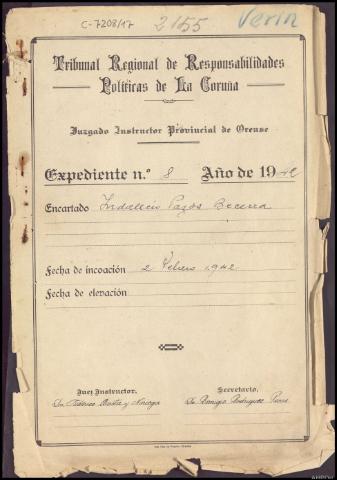 C-7208/17
2155
Verin
Tribunal Regional de Responsabilidades
Políticas de La Coruña
Juzgado Instructor Provincial de Orense
Expediente n.º 8 Año de 1942
Encartado Indalecio Pazos Becerra
Fecha de incoación 2 Febrero 1942
Fecha de elevación
Juez Instructor, Secretario,
Dn. Federico y Noriega Dn. Remigio Rodríguez